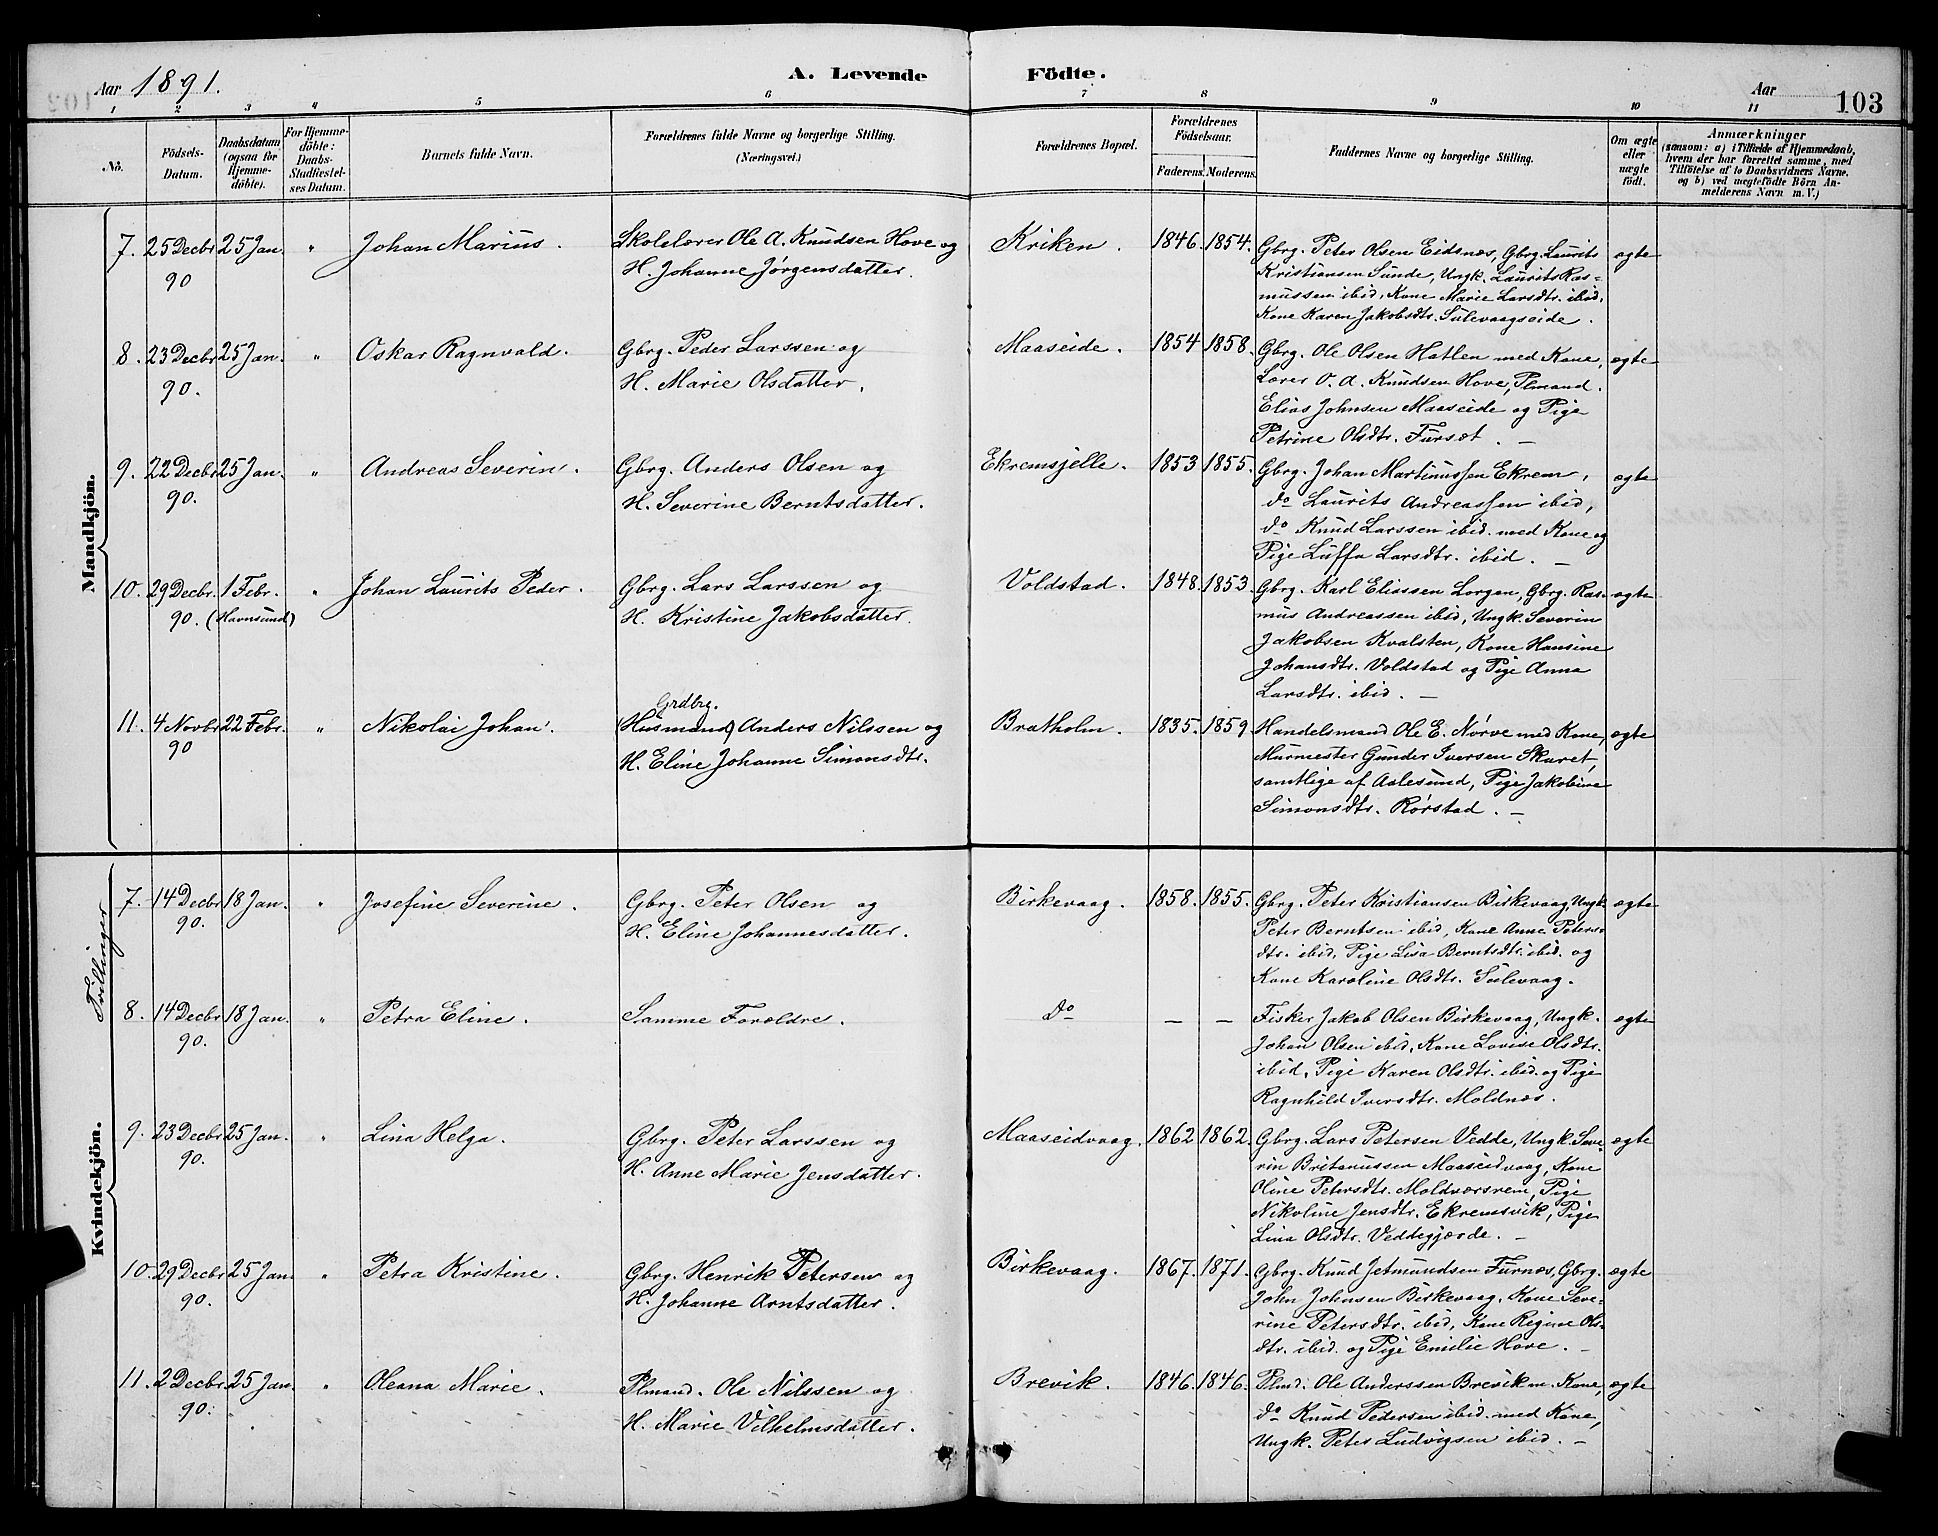 Aar 1891.
A. Levende Födte.
Aar
103
1 2 3 4 5 6 7 8 9 10 11
No.
Födsels-Datum.
Daabsdatum (ogsaa for Hjemme-döbte).
For Hjemme-döbte: Daabs-Stadfæstel-ses Datum.
Barnets fulde Navn.
Forældrenes fulde Navne og borgerlige Stilling.
(Næringsvei.)
Forældrenes Bopæl.
Forældrenes Födselsaar.
Faderens. Moderens.
Faddernes Navne og borgerlige Stilling.
Om ægte eller uægte födt.
Anmærkninger
(saasom: a) i Tilfælde af Hjemmedaab, hvem der har forrettet samme, med Tilföielse af to Daabsvidners Navne. og b) ved uægtefödte Börn An-melderens Navn m.V.)
Mandkjön.
7. 25 Decbr 25 Jan. " Johan Marius. Skolelærer Ole A. Knudsen Hove og Kriken. 1846. 1854. Gbrg. Peter Olsen Eidsnæs, Gbrg. Laurits ægte
90 H. Johanne Jørgensdatter. Kristiansen Sunde, Ungk. Laurits Ras=
mussen ibid, Kone Marie Larsdtr. ibid.
Kone Karen Jakobsdtr. Sulevaagseide.
8. 23 Decbr 25 Jan. " Oskar Ragnvald. Gbrg. Peder Larssen og Maaseide. 1854 1858. Gbrg. Ole Olsen Hatlen med Kone, ægte
90. H. Marie Olsdatter. Lærer O. A. Knudsen Hove, Plmand.
Elias Johnsen Maaseide og Pige
Petrine Olsdtr. Fursæt. —
9. 22 Decbr 25 Jan. " Andreas Severin. Gbrg. Anders Olsen og Ekremsjelle. 1853 1855. Gbrg. Johan Martinussen Ekrem, ægte
90. H. Severine Berntsdatter. do Laurits Andreassen ibid,
do Knud Larssen ibid. med Kone og
Pige Luffa Larsdtr. ibid. —
10. 29 Decbr. 1 Febr. " Johan Laurits Peder. Gbrg. Lars Larssen og Voldstad. 1848. 1853. Gbrg. Karl Eliassen Lorgen, Gbrg. Ras- ægte
90. (Havnsund) H. Kristine Jakobsdatter. mus Andreassen ibid, Ungk. Severin
Jakobsen Kvalsten, Kone Hansine
Johansdtr. Voldstad og Pige Anna
Larsdtr. ibid. —
Grdbrg.
11. 4 Novbr 22 Febr. " Nikolai Johan. (Husmand) Anders Nilssen og Bratholm. 1835. 1859. Handelsmand Ole E. Nørve med Kone, ægte
90 H. Eline Johanne Simonsdtr. Murmester Gunder Iversen Skaret,
samtlige af Aalesund, Pige Jakobine
Simonsdtr. Rørstad. —
Kvindekjön.
Tvillinger
7. 14 Decbr 18 Jan. " Josefine Severine. Gbrg. Peter Olsen og Birkevaag. 1858. 1855. Gbrg. Peter Kristiansen Birkevaag, Ungk. ægte
90. H. Eline Johannesdatter. Peter Berntsen ibid, Kone Anne Peters-
dtr. ibid, Pige Lisa Berntsdtr. ibid. og
Kone Karoline Olsdtr. Sulevaag.
8. 14 Decbr 18 Jan. " Petra Eline. Samme Forældre. do — — Fisker Jakob Olsen Birkevaag, Ungk. ægte
90. Johan Olsen ibid, Kone Lovise Olsdtr.
ibid, Pige Karen Olsdtr. ibid. og Pige
Ragnhild Iversdtr. Moldnæs.
9. 23 Decbr 25 Jan. " Lina Helga. Gbrg. Peter Larssen og Maaseidvaag. 1862 1862. Gbrg. Lars Petersen Vedde, Ungk. Seve- ægte
90. H. Anne Marie Jensdatter. rin Britanussen Maaseidvaag, Kone
Oline Petersdtr. Moldværsrem, Pige
Nikoline Jensdtr. Ekremsvik, Pige
Lina Olsdtr. Veddegjærde. —
10. 29 Decbr 25 Jan " Petra Kristine. Gbrg. Henrik Petersen og Birkevaag. 1867. 1871. Gbrg. Knud Jetmundsen Furnæs, Gbrg. ægte
90. H. Johanne Arntsdatter. John Johnsen Birkevaag, Kone Seve-
rine Petersdtr. ibid, Kone Regine Ols-
dtr. ibid. og Pige Emilie Hove. —
11. 2 Decbr. 25 Jan. " Oleana Marie. Plmand. Ole Nilssen og Brevik. 1846. 1846. Plmd. Ole Anderssen Brevik m. Kone, ægte
90. H. Marie Vilhelmsdatter. do Knud Pedersen ibid. med Kone,
Ungk. Peter Ludvigsen ibid. —